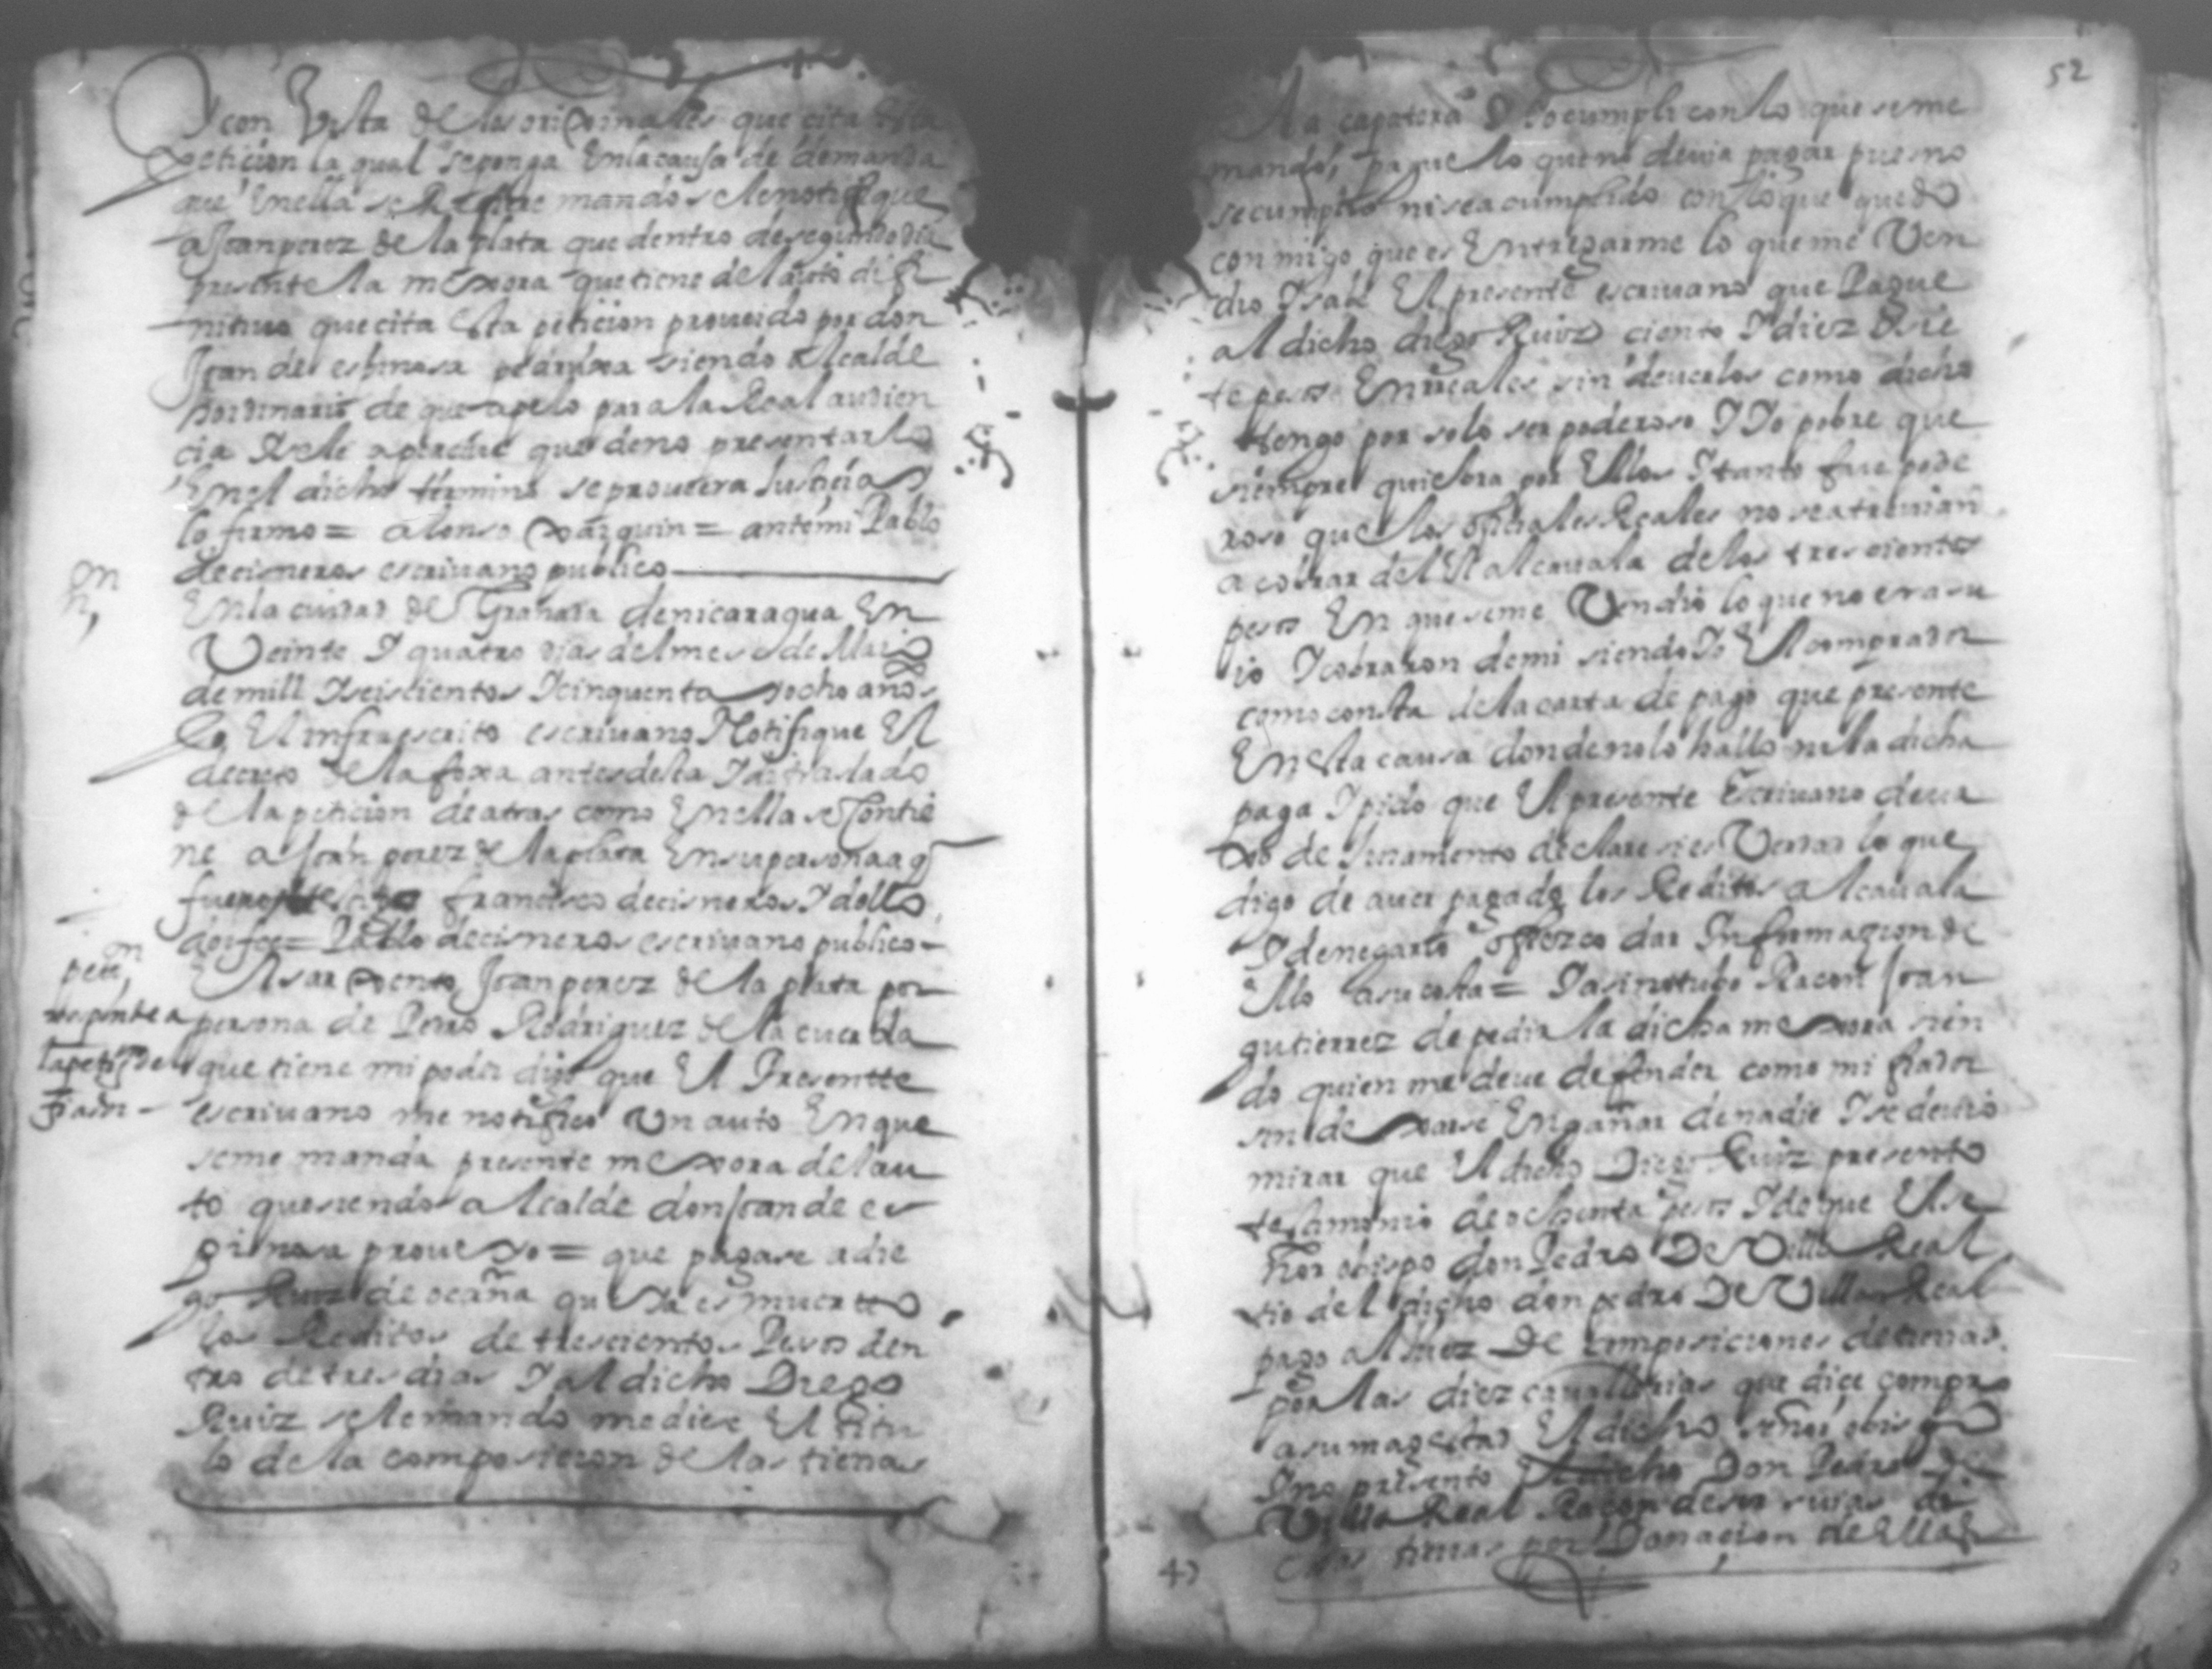 I con Vista de los orixinales que cita esta
peticion la qual se ponga En la causa de demanda
que En ella se Refiere mando se le notifique
a Joan perez de la plata que dentro de segundo dia
presente la mexora que tiene del auto difi
nitiuo que cita Esta peticion proueido por don
Joan de espinosa siendo Alcalde
hordinario de que apelo para la Real audien
cia I se le apercive que de no presentarlo
En el dicho termino se proueera Justicia I
lo firmo = alonso = ante mi Pablo
de cisneros escriuano publico
En la ciudad de Granada de nicaragua En
Veinte I quatro dias del mes de Maio
de mill I seiscientos I cinquenta I ocho años
Io El infraescrito escriuano Notifique El
decreto de la foxa antes desta I di traslado
de la peticion de atras como En ella se Contie
ne a Joan perez de la plata En su persona a q
fue testigo francisco de cisneros I dello
doi fee = Pablo de cisneros escriuano publico
petiᵒⁿ
El Sarxento Joan perez de la plata por
persona de Pedro Rodriguez de la cuerda
que tiene mi poder digo que El Presentte
fiador
escriuano me notifico Vn auto En que
se me manda presente mexora del au
to que siendo alcalde don Joan de es
pinosa proueyo = que pagase a die
go Ruiz de ocaña que Ia es muertto
los Reditos de trescientos Pesos den
tro de tres dias I al dicho Diego
Ruiz se le mando me diese El titu
lo de la composicion de las tierras
52
la capatera I Io cumpli con lo que se me
mando, pague lo que no deuia pagar pues no
se cumplio ni se a cumplido con lo que quedo
conmigo que es Entregarme lo que me Ven
dio I sabe El presente escriuano que Pague
al dicho diego Ruiz ciento I diez I sie
te pesos En reales sin deuerlos como dicho
tengo por solo ser poderoso I Io pobre que
siempre quiebra por Ellos I tanto fue pode
roso que los oficiales Reales no se atreuian
a cobrar del El alcauala de los trescientos
pesos En que se me Vendio lo que no era su
io I cobraron de mi siendo Io El comprador
como consta de la carta de pago que presente
En esta causa donde no lo hallo ni la dicha
paga I pido que El presente Escriuano deua
xo de Juramento declare si es Verdad lo que
digo de auer pagado los Reditos alcauala
I de negarlo ofrezco dar Informazion de
Ello a su costa = I asi no tubo Racon Joan
gutierrez de pedir la dicha mexora sien
do quien me deue defender como mi fiador
sin dexarse Engañar de nadie I se deuio
mirar que El dicho Diego Ruiz presento
testamonio de ochenta pesos I de que El se
ñor obispo don Pedro De Villa Real
tio del dicho don pedro De Villa Real
pago al Juez De composiciones de tierras
por las diez cauallerias que dice compro
a su magestad El dicho señor obispo
I no presento El dicho Don Pedro De
Villa Real Racon de ser suias di
chas tierras por Donacion de Ellas